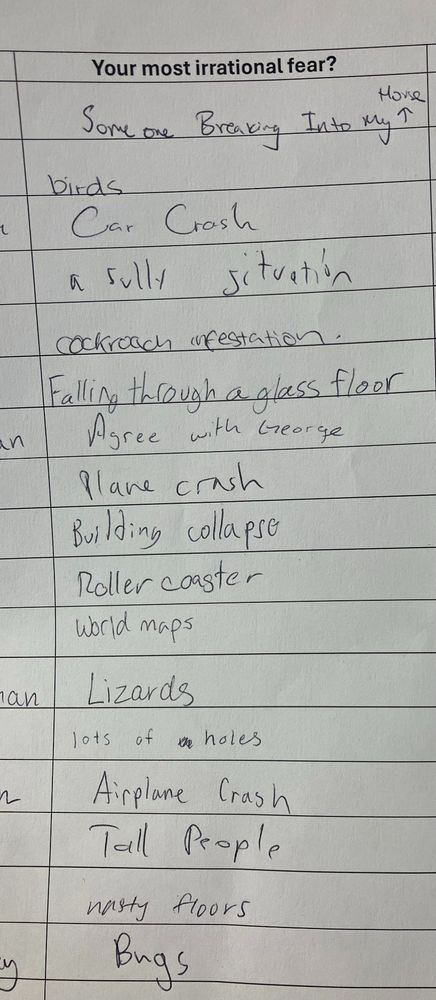 Your most irrational fear?
Someone Breaking Into My ↑ House
birds
Car Crash
a sully situation
cockroach infestation.
Falling through a glass floor
Agree with George
Plane crash
Building collapse
Roller coaster
World maps
Lizards
lots of holes
Airplane Crash
Tall People
nasty floors
Bugs